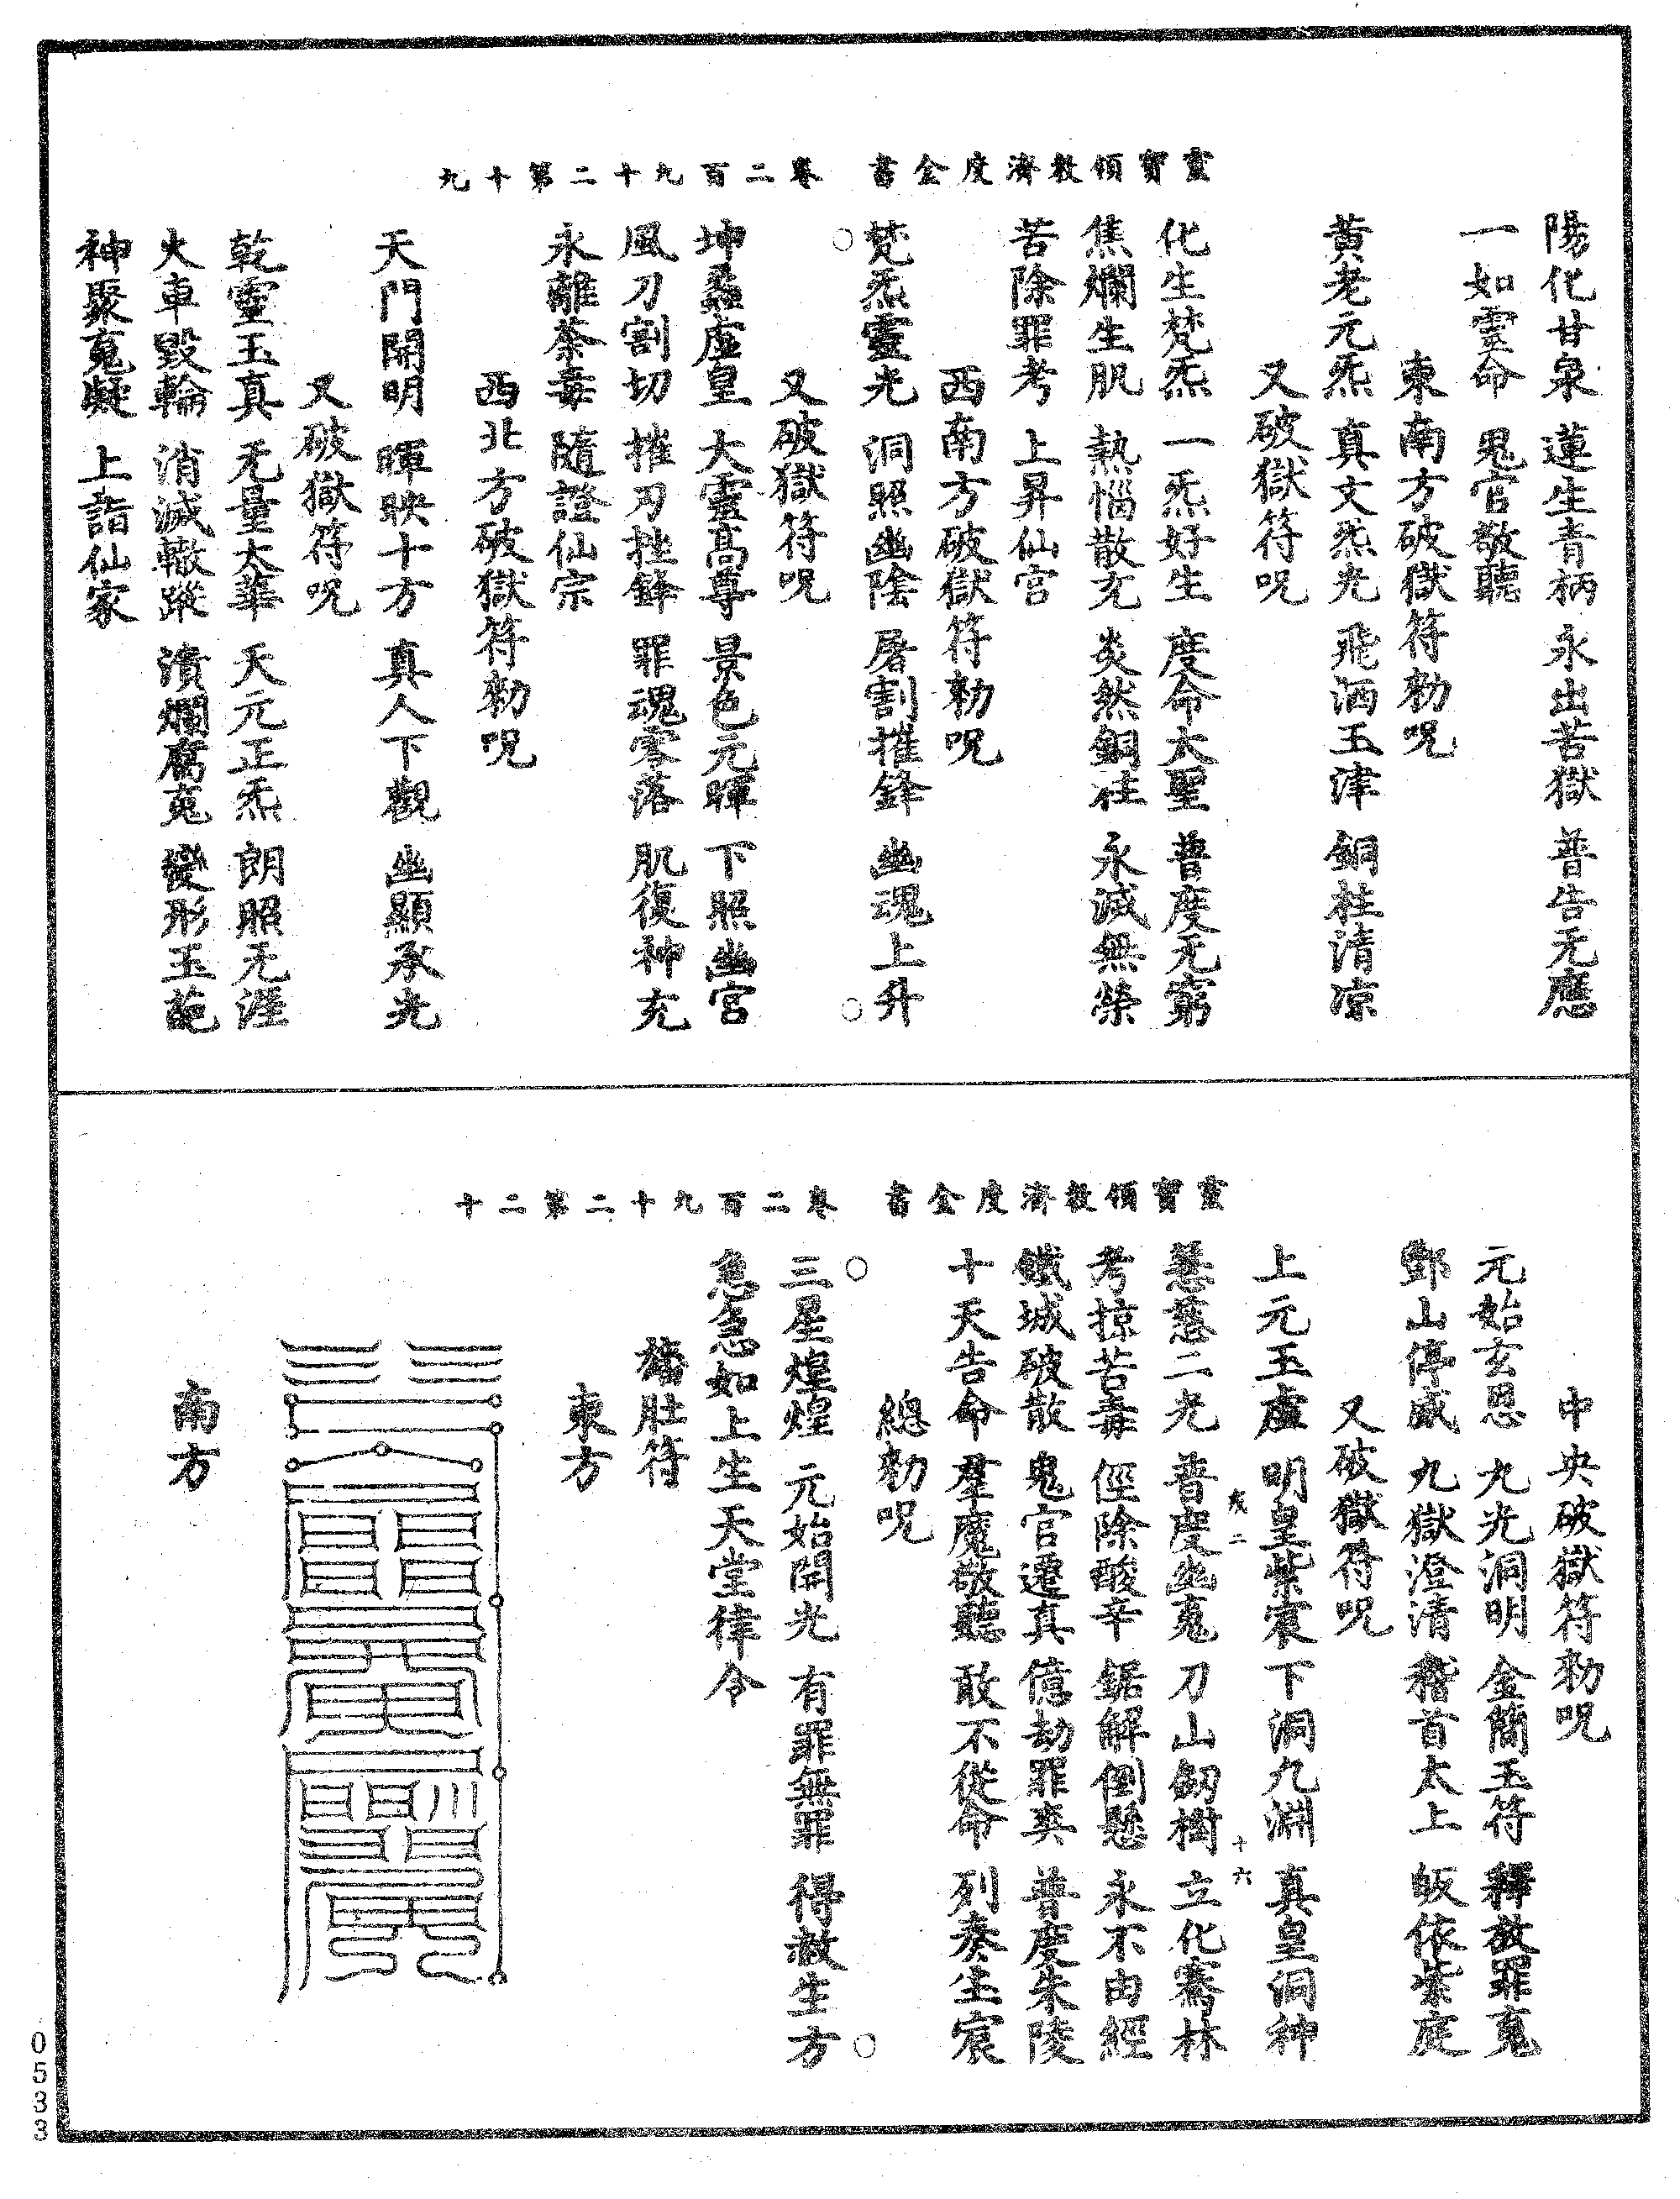 靈寶領教濟度金書　卷二百九十二第十九
陽化甘泉　蓮生青柄　永出苦獄　普告无應
一如靈命　鬼官敬聽
東南方破獄符勑呪
黃老元炁　真文炁光　飛洒玉津　銅柱清凉
又破獄符呪
化生梵炁　一炁好生　度命大聖　普度无窮
焦爛生肌　熱惱散充　炎然銅柱　永滅無榮
苦除罪考　上昇仙官
西南方破獄符勑呪
○梵炁靈光　洞照幽陰　屠割摧鋒　幽魂上升○
又破獄符呪
坤靈虛皇　大靈高尊　景色元暉　下照幽宮
風刀割切　摧刃挫鋒　罪魂零落　肌復神充
永離荼毒　隨證仙宗
西北方破獄符勑呪
天門開明　暉映十方　真人下觀　幽顯承光
又破獄符呪
乾靈玉真　无量太華　天元正炁　朗照无涯
火車毀輪　消滅轍蹤　潰爛腐䰟　變形玉葩
神聚䰟凝　上詣仙家
靈寶領教濟度金書　卷二百九十二第二十
中央破獄符勑呪
元始玄恩　九光洞明　金簡玉符　釋放罪䰟
酆山停威　九獄澄清　稽首太上　皈依紫庭
又破獄符呪
上元玉虛　明皇紫宸　下洞九淵　真皇洞神
慧慈二光　普度幽䰟　刀山劒樹　立化騫林
考掠苦毒　俓除酸辛　鋸解倒懸　永不由經
鐵城破散　鬼官遷真　億劫罪爽　普度朱陵
十天告命　羣魔敬聽　敢不從命　列奏生宸
總勑呪
○三星煌煌　元始開光　有罪無罪　得赦生方○
急急如上生天堂律令
旛肚符
東方
南方
二
十六
0533